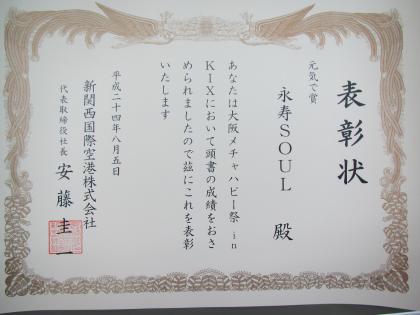 表彰状
元気で賞
永寿SOUL 殿
あなたは大阪メチャハピー祭 in
KIXにおいて頭書の成績をおさ
められましたので茲にこれを表彰
いたします
平成二十四年八月五日
新関西国際空港株式会社
代表取締役社長 安藤圭一